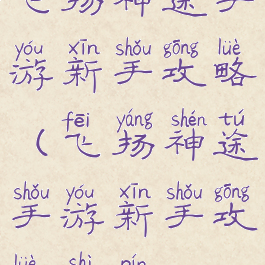 飞扬神途手
yóu xīn shǒu gōng lüè
游新手攻略
fēi yáng shén tú
（飞扬神途
shǒu yóu xīn shǒu gōng
手游新手攻
lüè shì pín